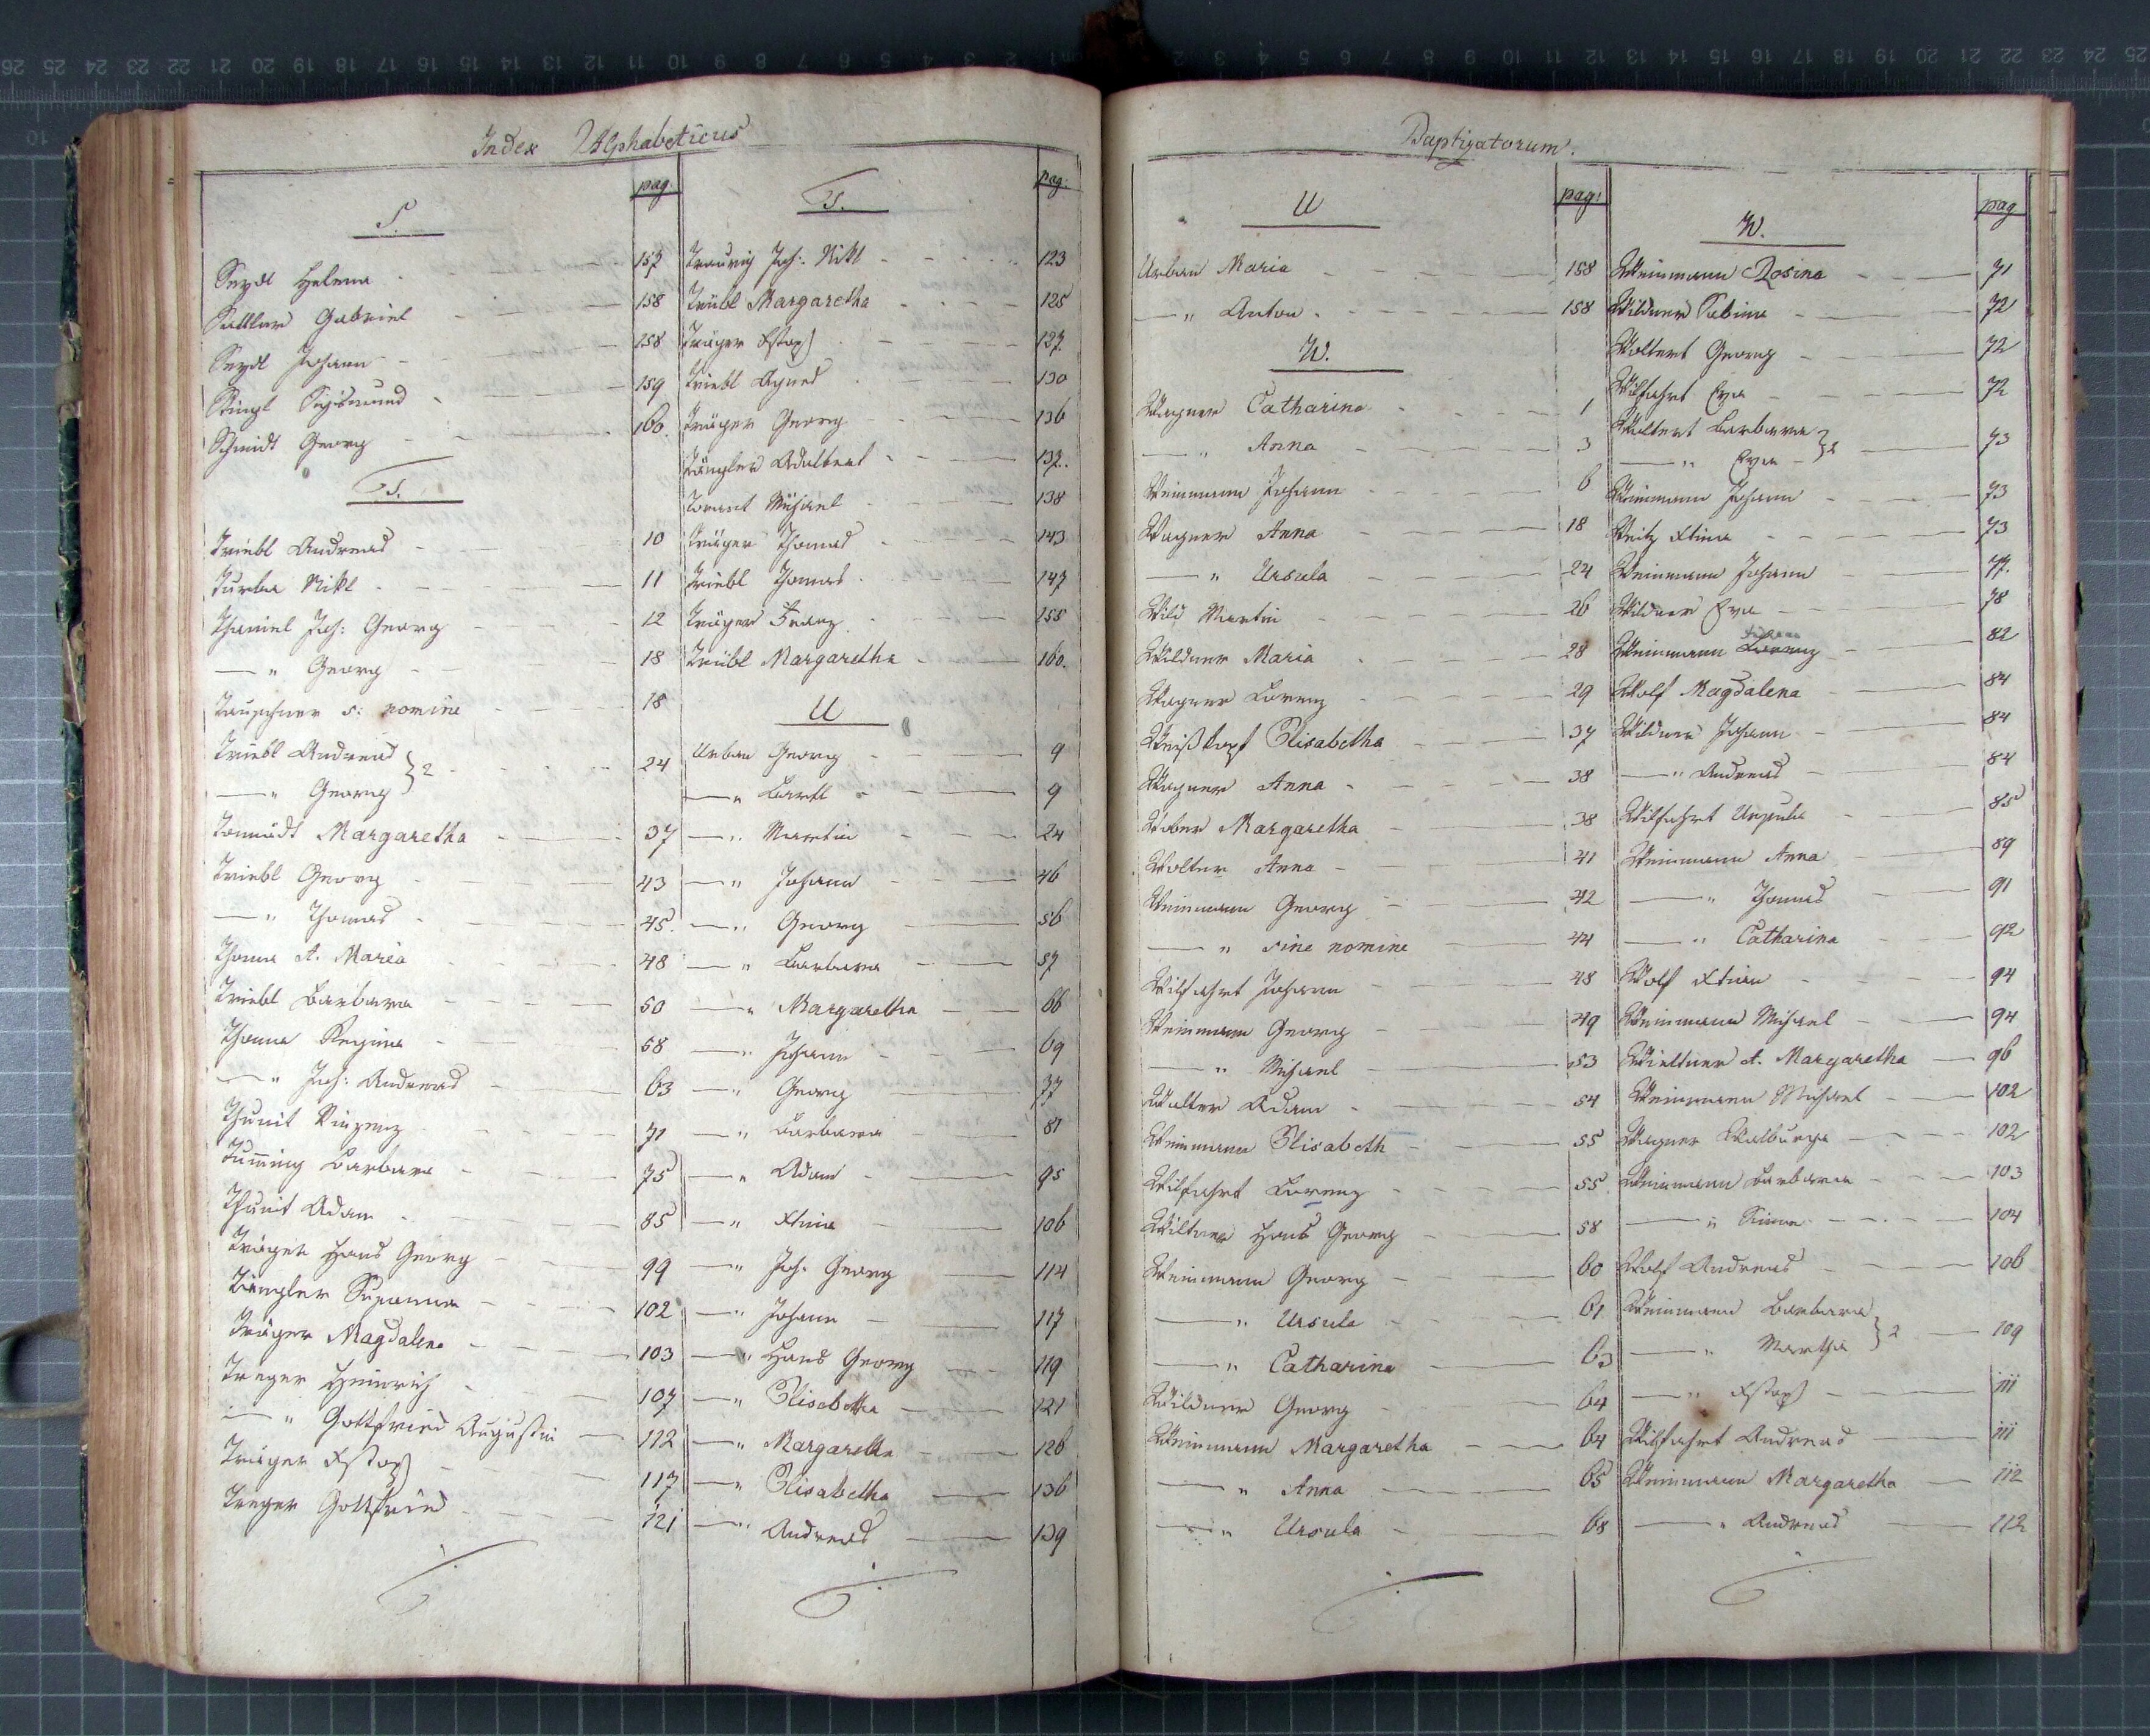 Index Alphabeticus
pag.
S.
Seydl Helena 157
Sattler Gabriel 158
Seydl Johann 158
Stingl Sigismund 159
Schmidt Georg 160.
T.
Triebl Andreas 10
Turba Nikl 11
Thaniel Joh: Georg 12
—„ Georg 18
Tauschner s: nomine 18
Triebl Andreas } 2 24
—„ Georg
Margaretha 37
Triebl Georg 43
—„ Thomas 45.
Thoma A. Maria 48
Triebl Barbara 50
Thoma Regina 58
—„ Joh: Andreas 63
Vinzenz 71
Barbara 75
Adam 85
Träger Hans Georg 99
Tängler Susanna 102
Träger Magdalena 103
Treger Heinrich 107
—„ Gottfried Augustin 112
Träger Xstoph 117
Treger Gottfried 121
pag:
T.
Joh: Nikl 123
Triebl Margaretha 125
Träger Xstoph 127.
Triebl Agnes 130
Träger Georg 136
Tängler Adalbert 137.
Michael 138
Träger Thomas 143
Triebl Thomas 147
Träger Franz 155
Triebl Margaretha 160.
U
Urban Georg 9
—„ Bartl 9
—„ Martin 24
—„ Johann 46
—„ Georg 56
—„ Barbara 57
—„ Margaretha 66
—„ Johann 69
—„ Georg 77
—„ Barbara 81
—„ Adam 95
—„ Xtina 106
—„ Joh. Georg 114
—„ Johann 117
—„ Hans Georg 119
—„ Elisabetha 121
—„ Margaretha 126
—„ Elisabetha 136
—„ Andreas 139
Baptizatorum.
pag:
U
Urban Maria 158
—„ Anton 158
W.
Wagner Catharina 1
—„ Anna 3
Weinmann Johann 6
Wagner Anna 18
—„ Ursula 24
Wild Martin 26
Wildner Maria 28
Wagner Lorenz 29
Weißkopf Elisabetha 37
Wagner Anna 38
Weber Margaretha 38
Wolter Anna 41
Weinmann Georg 42
—„ sine nomine 44
Wilfahrt Johann 48
Weinmann Georg 49
—„ Michael 53
Walter Adam 54
Weinmann Elisabeth 55
Wilfahrt Lorenz 55
Wiltner Hans Georg 58
Weinmann Georg 60
—„ Ursula 61
—„ Catharina 63
Wildner Georg 64
Weinmann Margaretha 64
—„ Anna 65
—„ Ursula 68
pag
W.
Weinmann Rosina 71
Wildner Sabina 72
Woltert Georg 72
Wilfahrt Eva 72
Woltert Barbara } 2 73
—„ Eva
Weinmann Johann 73
Weitz Xtina 73
Weinmann Johann 77.
Wildner Eva 78
Weinmann Lorenz 82
Wolf Magdalena 84
Wildner Johann 84
—„ Andreas 84
Wilfahrt Ursula 85
Weinmann Anna 89
—„ Thomas 91
—„ Catharina 92
Wolf Xtian 94
Weinmann Michael 94
Wieltner A. Margaretha 96
Weinmann Michael 102
Wagner Walburga 102
Weinmann Barbara 103
—„ Simon 104
Wolf Andreas 106
Weinmann Barbara } 2 109
—„ Martha
—„ Xstoph 111
Wilfahrt Andreas 111
Weinmann Margaretha 112
—„ Andreas 112